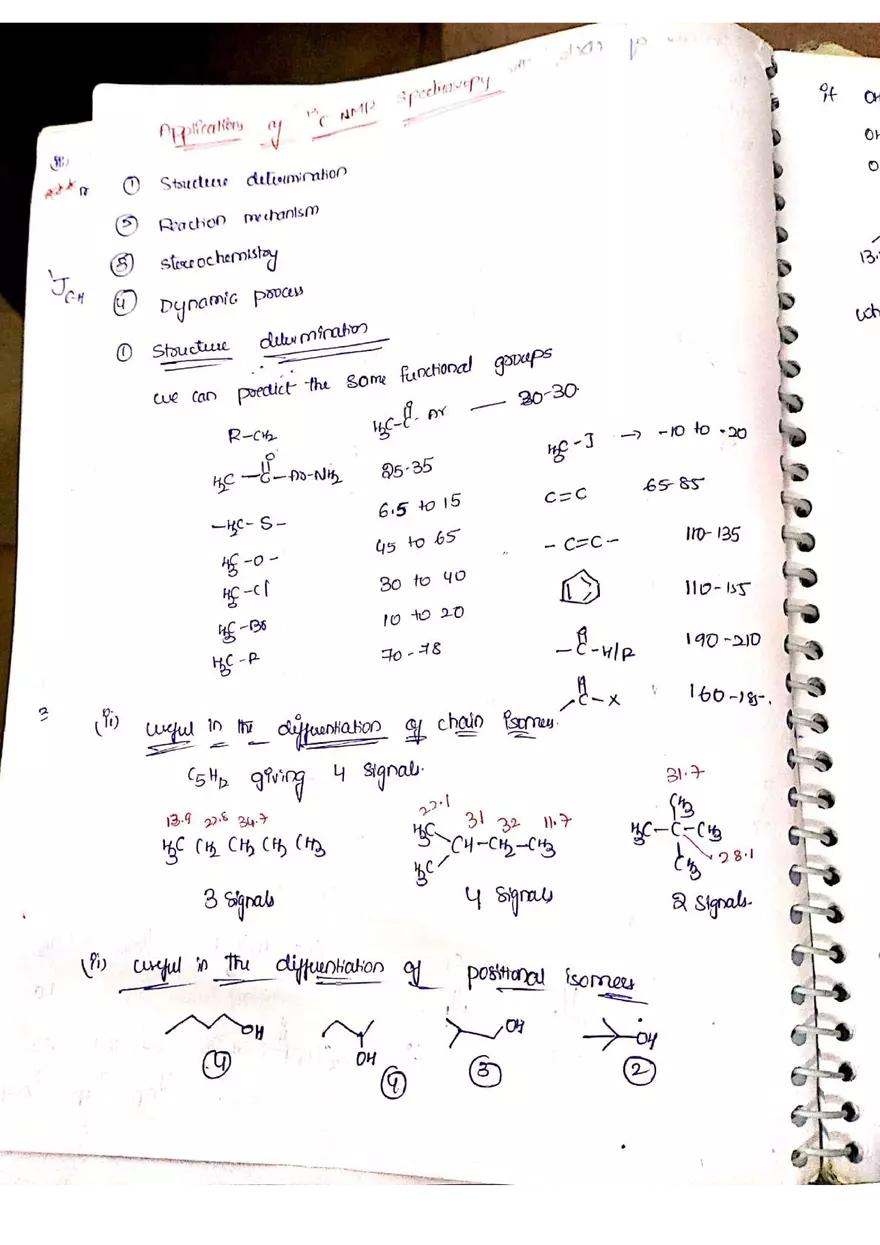 Applications of ¹³C NMR Spectroscopy
① Structure determination
② Reaction mechanism
③ Stereochemistry
¹J C-H
④ Dynamic process
① Structure determination
we can predict the some functional groups
R-CH₂
H₃C-C(=O)-Ar — 20-30
H₂C-C(=O)-Ar-NH₂ 25-35
H₃C-I → -10 to -20
-H₂C-S- 6.5 to 15
C=C 65-85
H₃C-O- 45 to 65
-C=C- 110-135
H₃C-Cl 30 to 40
110-135
H₃C-Br 10 to 20
-C(=O)-H/R 190-210
H₃C-F 70-78
-C(=O)-X 160-185.
3
(ii) useful in the differentiation of chain isomers.
C₅H₁₂ giving 4 signals.
13.9 22.8 34.7
H₃C CH₂ CH₂ CH₂ CH₃
3 signals
22.1 31 32 11.7
H₃C
H₃C CH-CH₂-CH₃
4 signals
31.7
CH₃
H₃C-C-CH₃
CH₃ 28.1
2 signals.
(ii) useful in the differentiation of positional isomers
OH OH OH OH
④ ④ ③ ②
if OH
OH
O
13.